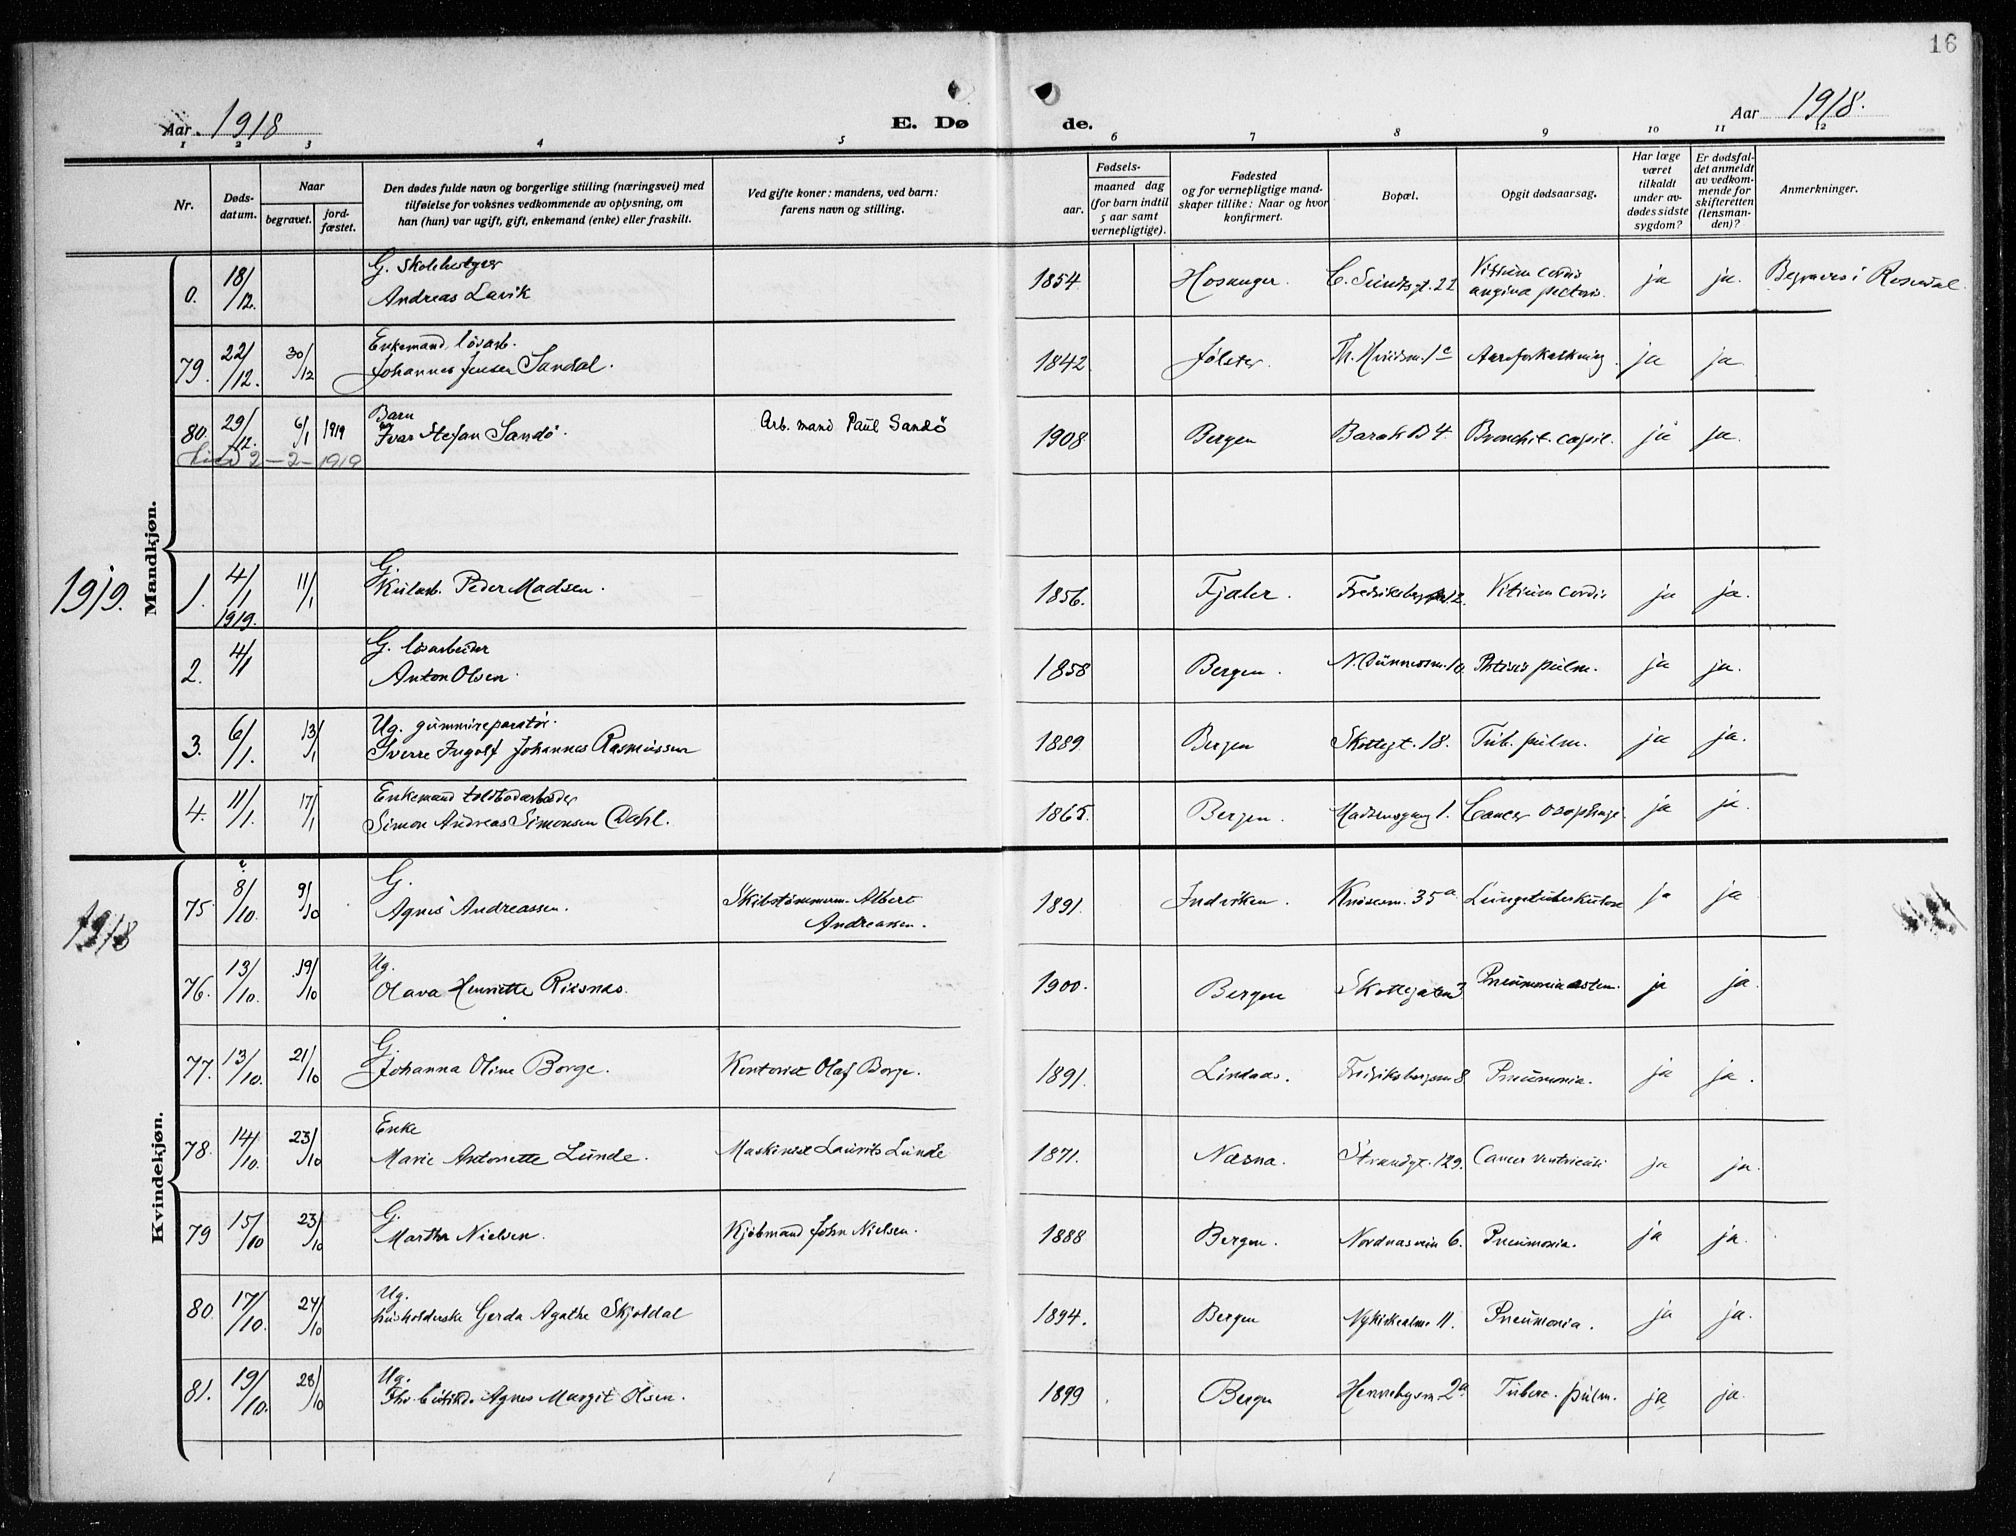 16
Aar 1918
E. Dø de.
Aar 1918.
1 2 3 4 5 6 7 8 9 10 11 12
Nr.
Døds-
datum.
Naar
begravet.
jord-
fæstet.
Den dødes fulde navn og borgerlige stilling (næringsvei) med
tilføielse for voksnes vedkommende av oplysning, om
han (hun) var ugift, gift, enkemand (enke) eller fraskilt.
Ved gifte koner: mandens, ved barn:
farens navn og stilling.
Fødsels-
aar.
maaned dag
(for barn indtil
5 aar samt
vernepligtige).
Fødested
og for vernepligtige mand-
skaper tillike: Naar og hvor
konfirmert.
Bopæl.
Opgit dødsaarsag.
Har læge
været
tilkaldt
under av-
dødes sidste
sygdom?
Er dødsfal-
det anmeldt
av vedkom-
mende for
skifteretten
(lensman-
den)?
Anmerkninger.
Mandkjøn.
0. 18/12. G.
Andreas Lavik
1854 Hosanger. C. Sundsgt. 22 Vitium cordis
angina pectoris. ja ja. Begraves i Rosendal.
79. 22/12. 30/12 Enkemand, løsarb.
Johannes Jensen Sandal.
1842 Jølster. 1c Aareforkalkning. ja ja.
80. 29/12. 6/1 1919 Barn
Ivar Stefan Sandö. Arb. mand Paul Sandö
1908 Bergen Barak B 4. Bronchit. capil. ja ja.
2 - 2 - 1919
1919.
1. 4/1 1919. 11/1 G.
Kularb. Peder Madsen.
1856. Fjaler. Fredriksberg 12. Vitium cordis ja ja.
2. 4/1 G. løsarbeider
Anton Olsen.
1858 Bergen. Ptisis pulm. ja ja.
3. 6/1. 13/1 Ug. gummireparatör.
Sverre Ingolf Johannes Rasmussen
1889. Bergen Skottegt. 18. Tub. pulm. ja ja.
4. 11/1. 17/1 Enkemand toldbodarbeider
Simon Andreas Simonsen Dahl.
1865. Bergen. Madsensgang 1. Cancer ja ja.
Kvindekjøn.
1918
75 8/10. 9/10 G.
Agnes Andreassen. Skibstömmerm. Albert
Andreassen.
1891. Indviken. Knösesm. 35a Lungetuberkulose ja ja
76. 13/10. 19/10 Ug.
Olava Henriette Riisnes.
1900. Bergen Skottegaten 3 Pneumonia ja ja
77. 13/10. 21/10 G.
Johanna Oline Borge. Kontorist Olaf Borge.
1891. Lindaas. Fredriksbergsm 8 Pneumonia. ja ja.
78. 14/10. 23/10 Enke
Marie Antonette Lunde. Maskinist Laurits Lunde
1871. Næsna. Strandgt. 129. Cancer ventriculi ja ja.
79 15/10 23/10 G.
Martha Nielsen. Kjöbmand John Nielsen.
1888 Bergen. Nordnæsvein 6. Pneumonia. ja ja.
80. 17/10. 24/10 Ug.
husholderske Gerda Agathe Skjoldal
1894. Bergen Nykirkealm. 11. Pneumonia. ja ja.
81. 19/10. 28/10 Ug.
Agnes Margit Olsen.
1899 Bergen Hennebysm 2a Tuberc. pulm. ja ja.